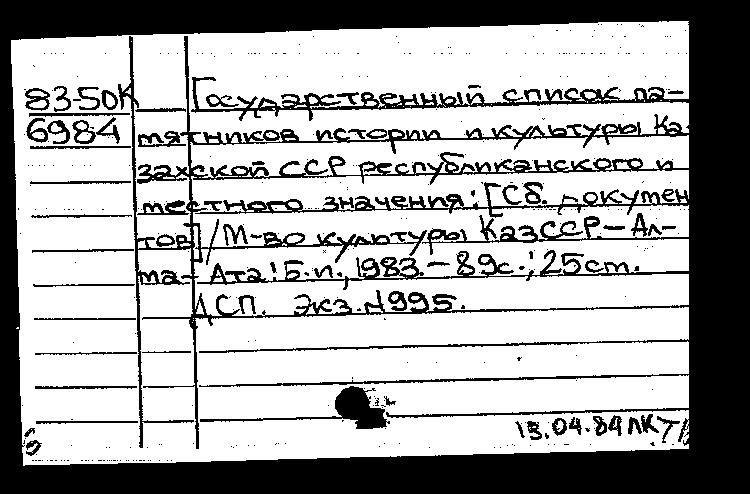 83-50К Государственный список па-
6984 мятников истории и культуры Ка-
захской ССР республиканского и
местного значения: [Сб. докумен
тов] / М-во культуры КазССР.-Ал-
ма-Ата: Б.и., 1983.-89с.; 25см.
ДСП. Экз.№995.
13.04.84 ЛК